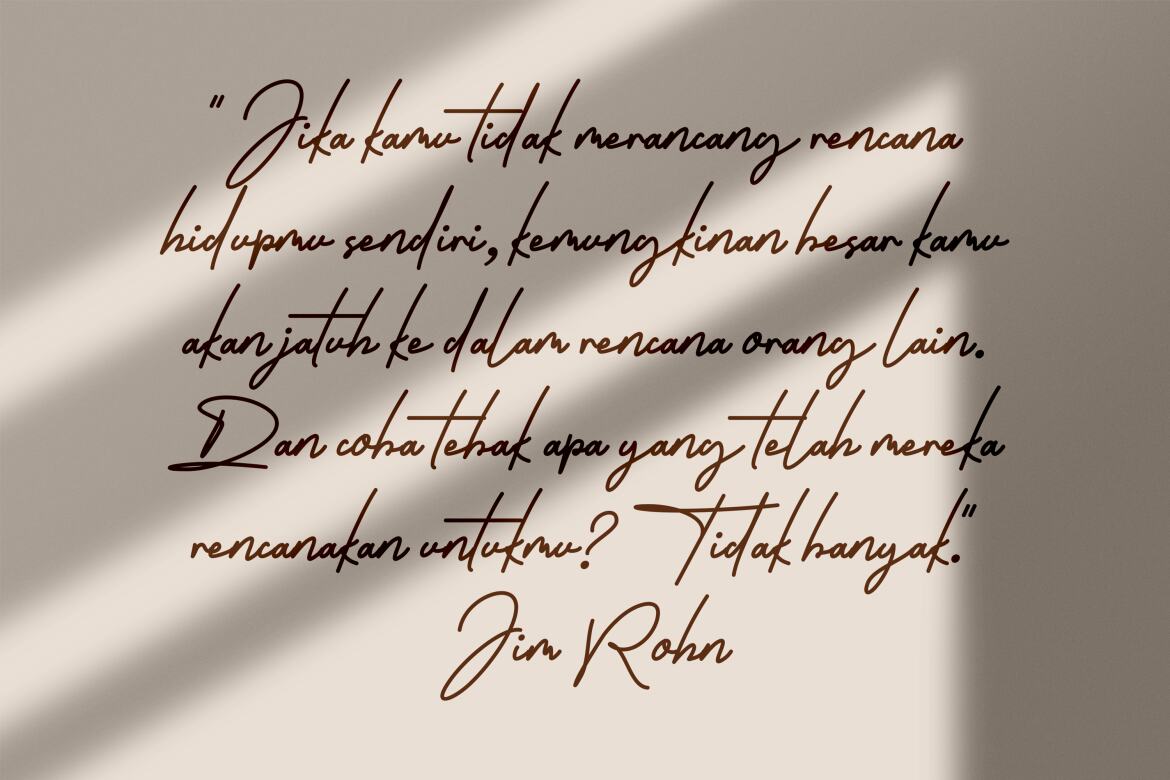 "Jika kamu tidak merancang rencana
hidupmu sendiri, kemungkinan besar kamu
akan jatuh ke dalam rencana orang lain.
Dan coba tebak apa yang telah mereka
rencanakan untukmu? Tidak banyak."
Jim Rohn